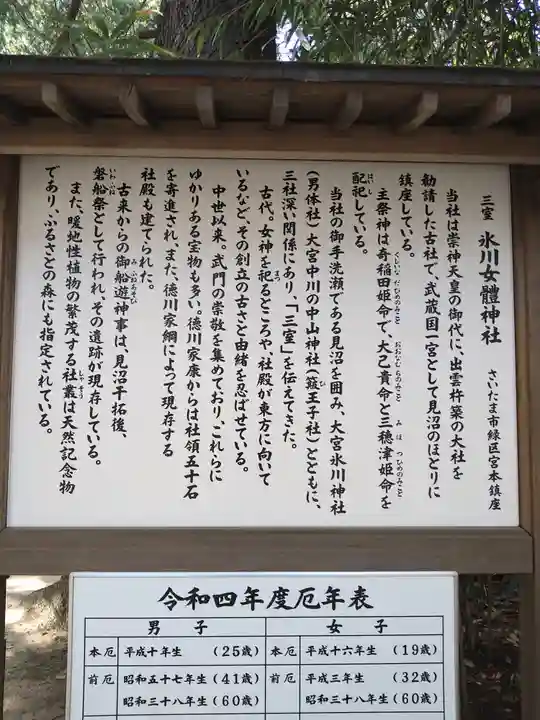 三室 氷川女體神社
さいたま市緑区宮本鎮座
当社は崇神天皇の御代に、出雲杵築の大社を
勧請した古社で、武蔵国一宮として見沼のほとりに
鎮座している。
主祭神は奇稲田姫命で、大己貴命と三穂津姫命を
くしいなだひめのみこと おおなむちのみこと みほつひめのみこと
配祀している。
はいし
当社の御手洗瀬である見沼を囲み、大宮氷川神社
(男体社)大宮中川の中山神社(簸王子社)とともに、
ひ
三社深い関係にあり、「三室」を伝えてきた。
古代。女神を祀るところや、社殿が東方に向いて
まつ
いるなど、その創立の古さと由緒を忍ばせている。
中世以来。武門の崇敬を集めており、これらに
ゆかりある宝物も多い。徳川家康からは社領五十石
を寄進され、また、徳川家綱によって現存する
社殿も建てられた。
古来からの御船遊神事は、見沼干拓後、
みふねあそび
磐船祭として行われ、その遺跡が現存している。
いわふね
また、暖地性植物の繁茂する社叢は天然記念物
しゃそう
であり、ふるさとの森にも指定されている。
令和四年度厄年表
男子 女子
本厄 平成十年生 (25歳) 本厄 平成十六年生 (19歳)
前厄 昭和五十七年生 (41歳) 前厄 平成三年生 (32歳)
昭和三十八年生 (60歳) 昭和三十八年生 (60歳)